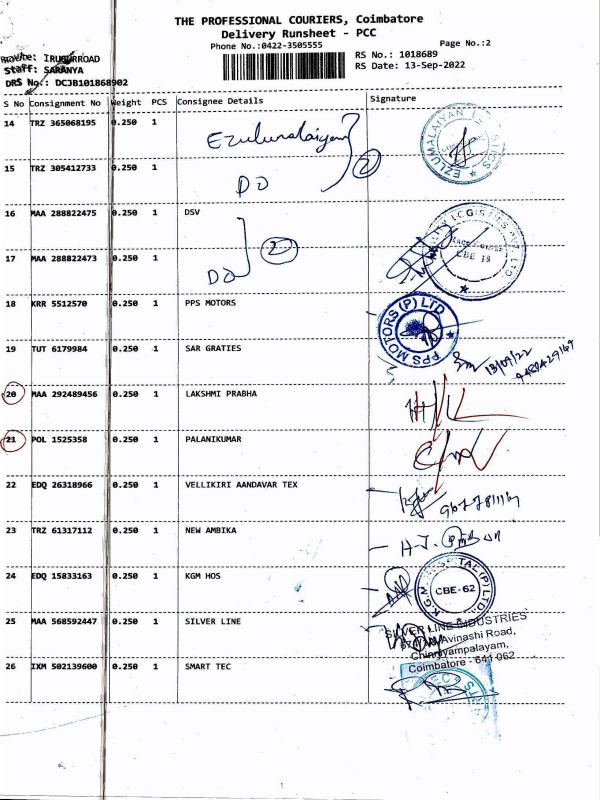 THE PROFESSIONAL COURIERS, Coimbatore
Delivery Runsheet - PCC
Phone No.:0422-3505555
Page No.:2
Route: IRUGURROAD
Staff: SARANYA
DRS No.: DCJB101868902
RS No.: 1018689
RS Date: 13-Sep-2022
S No Consignment No Weight PCS Consignee Details Signature
14 TRZ 365068195 0.250 1 Ezulumalaiyan
EZLUMALAIYAN
15 TRZ 305412733 0.250 1 DO 2
16 MAA 288822475 0.250 1 DSV 2
17 MAA 288822473 0.250 1 DO
CBE 18
18 KRR 5512570 0.250 1 PPS MOTORS
PPS MOTORS (P) LTD
19 TUT 6179984 0.250 1 SAR GRATIES
13/09/22
20 MAA 292489456 0.250 1 LAKSHMI PRABHA
21 POL 1525358 0.250 1 PALANIKUMAR
22 EDQ 26318966 0.250 1 VELLIKIRI AANDAVAR TEX
23 TRZ 61317112 0.250 1 NEW AMBIKA
24 EDQ 15833163 0.250 1 KGM HOS
CBE-62
25 MAA 568592447 0.250 1 SILVER LINE
SILVER LINE INDUSTRIES
Avinashi Road,
Chinniyampalayam,
Coimbatore - 641 062
26 IXM 502139600 0.250 1 SMART TEC